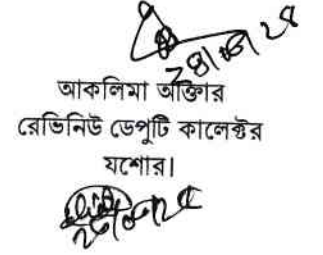 আকলিমা আক্তার
রেভিনিউ ডেপুটি কালেক্টর
যশোর।